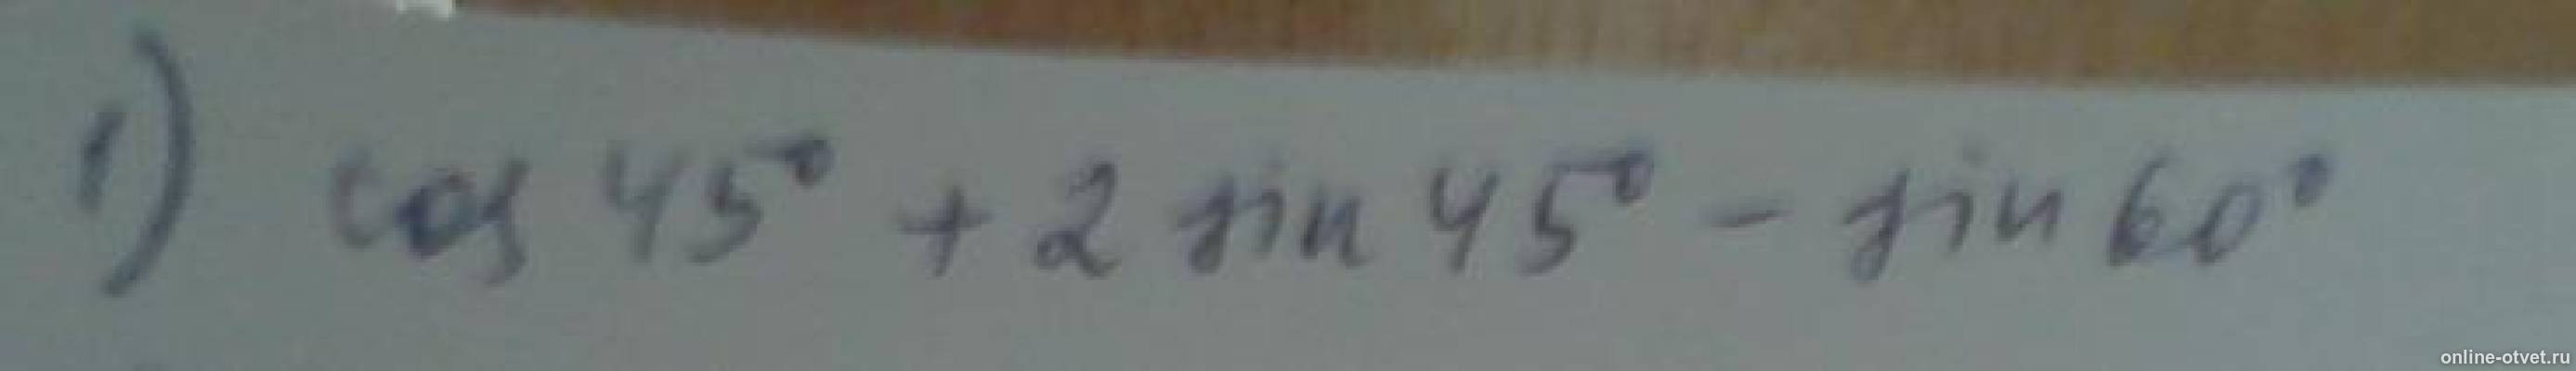 1) cos 45° + 2 sin 45° - sin 60°
online-otvet.ru